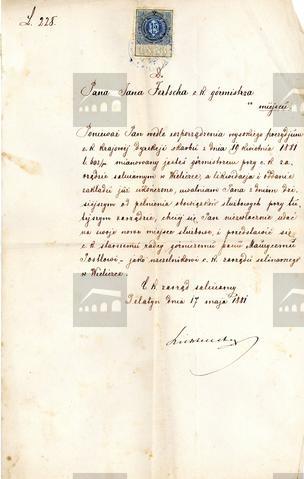 L. 228.
15
Do
Pana Jana Fritscha c. k górmistrza
w miejscu
Ponieważ Pan wedle rozporządzenia wysokiego prezydjum
c. k. krajowej Dyrekcji skarbu z dnia 19 kwietnia 1881
mianowany jesteś górmistrzem przy c. k. za-
rządzie salinarnym w Wieliczce, a likwidacja i oddanie
zakładu już ukończone, uwalniam Pana z dniem dzi-
siejszym od pełnienia obowiązków służbowych przy tu-
tejszym zarządzie, chciej się Pan niezwłocznie udać
na swoje nowe miejsce służbowe, i przedstawić się
c. k starszemu radcy górniczemu panu
jako naczelnikowi c. k. zarządu salinarnego
w Wieliczce.
C. k zarząd salinarny
Delatyn dnia 17 maja 1881